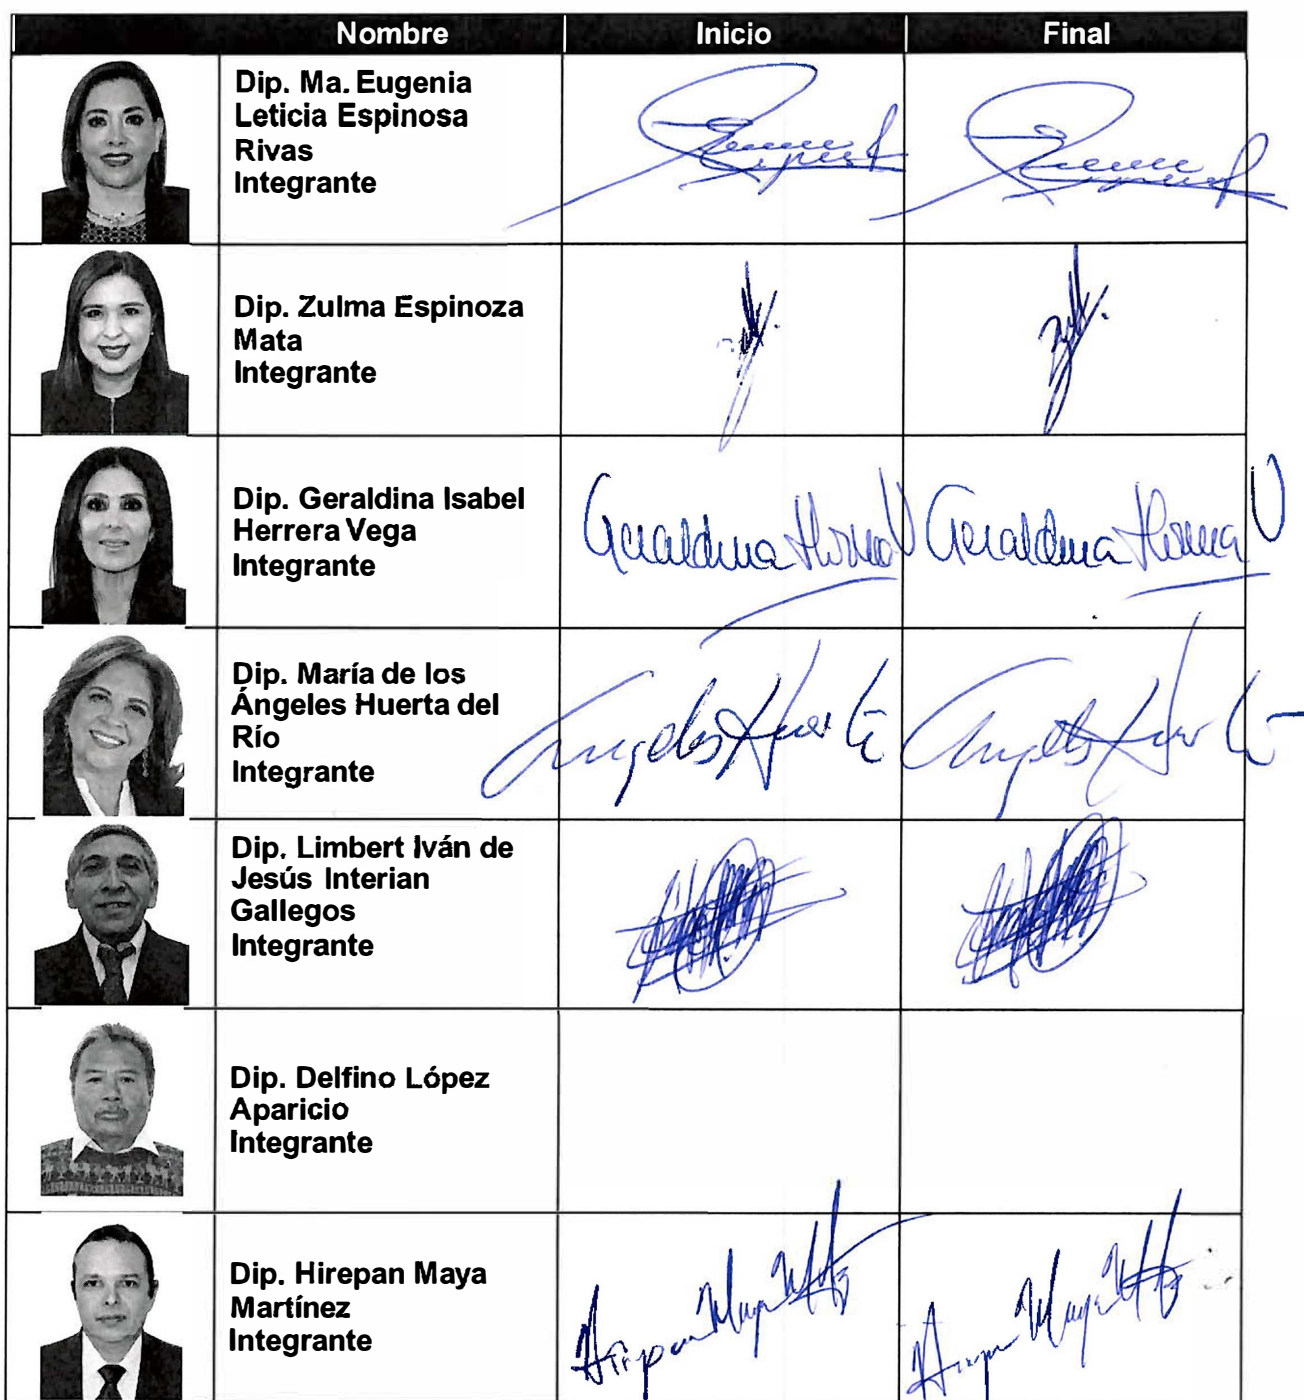 Nombre Inicio Final
Dip. Ma. Eugenia
Leticia Espinosa
Rivas
Integrante
Dip. Zulma Espinoza
Mata
Integrante
Dip. Geraldina Isabel
Herrera Vega
Integrante
Geraldina Herrera V Geraldina Herrera V
Dip. María de los
Ángeles Huerta del
Río
Integrante
Angeles Huerta Angeles Huerta
Dip. Limbert Iván de
Jesús Interian
Gallegos
Integrante
Dip. Delfino López
Aparicio
Integrante
Dip. Hirepan Maya
Martínez
Integrante
Hirepan Maya Mtz Hirepan Maya Mtz